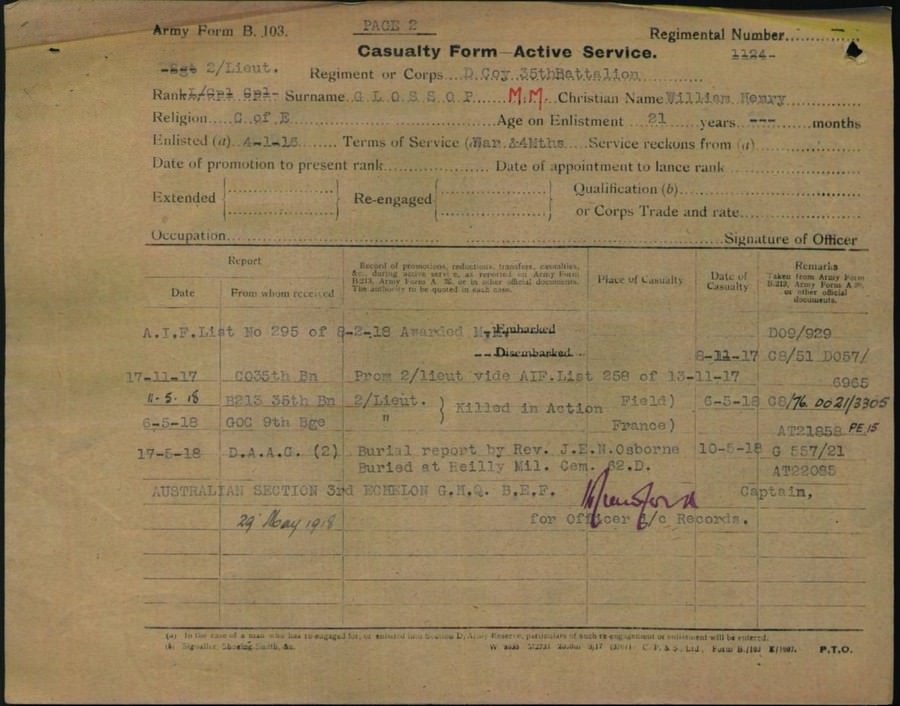 Army Form B. 103. PAGE 2 Regimental Number
Casualty Form—Active Service. 1124
Sgt 2/Lieut. Regiment or Corps D Coy 35thBattalion
Rank L/Cpl Cpl Surname G L O S S O P M.M. Christian Name William Henry
Religion C of E Age on Enlistment 21 years --- months
Enlisted (a) 4-1-16 Terms of Service War &4Mths Service reckons from (a)
Date of promotion to present rank Date of appointment to lance rank
Extended Re-engaged Qualification (b)
or Corps Trade and rate
Occupation Signature of Officer
Report Record of promotions, reductions, transfers, casualties, &c., during active service, as reported on Army Form B.213, Army Form A. 36, or in other official documents. The authority to be quoted in each case. Place of Casualty Date of Casualty Remarks Taken from Army Form B.213, Army Form A.36, or other official documents.
Date From whom received
A.I.F.List No 295 of 8-2-18 Awarded M.M. Embarked DO9/929
Disembarked 8-11-17 C8/51 DO57/
17-11-17 CO35th Bn Prom 2/lieut vide AIF.List 258 of 13-11-17 6965
11.5.18 B213 35th Bn 2/Lieut. } Killed in Action Field) 6-5-18 C8/76 DO21/3305
6-5-18 GOC 9th Bge " France) AT21858 PE 15
17-5-18 D.A.A.G. (2) Burial report by Rev. J.E.N.Osborne 10-5-18 G 557/21
Buried at Heilly Mil. Cem. 62.D. AT22085
AUSTRALIAN SECTION 3rd ECHELON G.H.Q. B.E.F. Captain,
29 May 1918 for Officer i/c Records.
(a) In the case of a man who has re-engaged for, or enlisted into Section D, Army Reserve, particulars of such re-engagement or enlistment will be entered.
(b) Signaller, Shoeing-Smith, &c. C. P. & S., Ltd., Form B./103 E/1907. P.T.O.